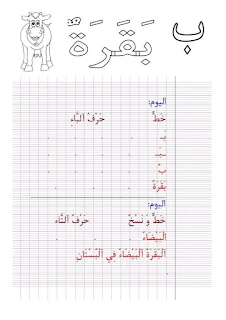 ب بَقَرَة
اليوم:
خَطٌّ حَرْفُ اَلْبَاءِ
بَـ
ـبـ
ب
بَقَرَةٌ
اليوم:
خَطٌّ وَ نَسْخٌ حَرْفُ اَلتَّاء
اَلْبَيْضَاءُ
اَلْبَقَرَةُ اَلْبَيْضَاءُ فِي اَلْبُسْتَانِ